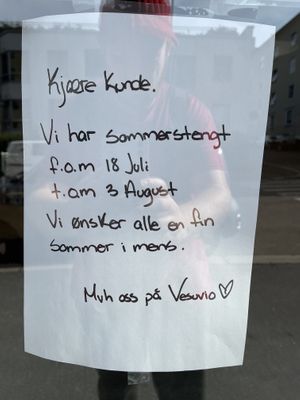 Kjære Kunde.
Vi har sommerstengt
f.o.m 18 Juli
t.o.m 3 August
Vi ønsker alle en fin
sommer i mens.
Mvh oss på Vesuvio♡